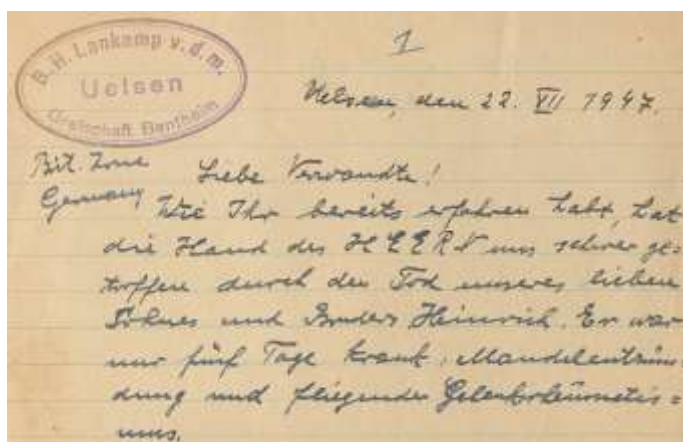 1
B. H. Lankamp v. d. m.
Uelsen
Grafschaft Bentheim
Uelsen, den 22. VII 1947.
Brit. Zone
Germany
Liebe Verwandte!
Wie Ihr bereits erfahren habt, hat
die Hand des HEERN uns schwer ge-
troffen durch den Tod unseres lieben
Sohnes und Bruders Heinrich. Er war
nur fünf Tage krank, Mandelentzün-
dung und fliegender Gelenkrheumatis=
mus.